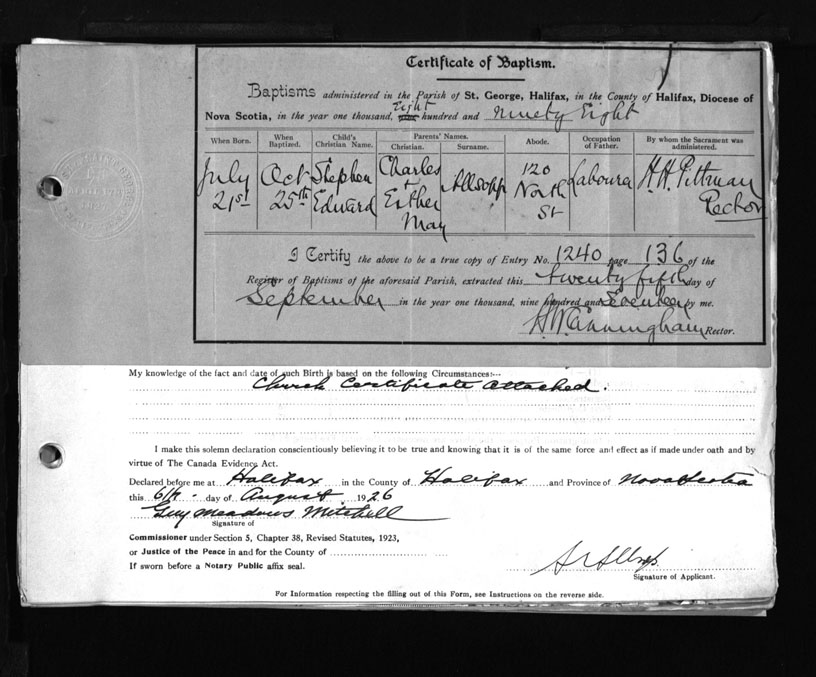 Certificate of Baptism.
Baptisms administered in the Parish of St. George, Halifax, in the County of Halifax, Diocese of
Eight
Nova Scotia, in the year one thousand, hundred and Ninety Eight
When Born. When Baptized. Child's Christian Name. Parents' Names. Christian. Surname. Abode. Occupation of Father. By whom the Sacrament was administered.
July 21st Oct 25th Stephen Edward Charles + Esther May Allsopp 120 North St Labourer H. H. Pittman Rector
I Certify the above to be a true copy of Entry No. 1240 page 136 of the
Register of Baptisms of the aforesaid Parish, extracted this twenty fifth day of
September in the year one thousand, nine hundred and Seventeen by me.
H W Cunningham Rector.
My knowledge of the fact and date of such Birth is based on the following Circumstances:--
Church Certificate attached.
I make this solemn declaration conscientiously believing it to be true and knowing that it is of the same force and effect as if made under oath and by
virtue of The Canada Evidence Act.
Declared before me at Halifax in the County of Halifax and Province of Nova Scotia
this 6th day of August 1926
Guy Meadows Mitchell
Signature of
Commissioner under Section 5, Chapter 38, Revised Statutes, 1923,
or Justice of the Peace in and for the County of
If sworn before a Notary Public affix seal.
Signature of Applicant.
For Information respecting the filling out of this Form, see Instructions on the reverse side.